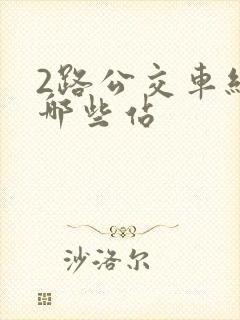 2路公交車
哪些佔
沙洛尔